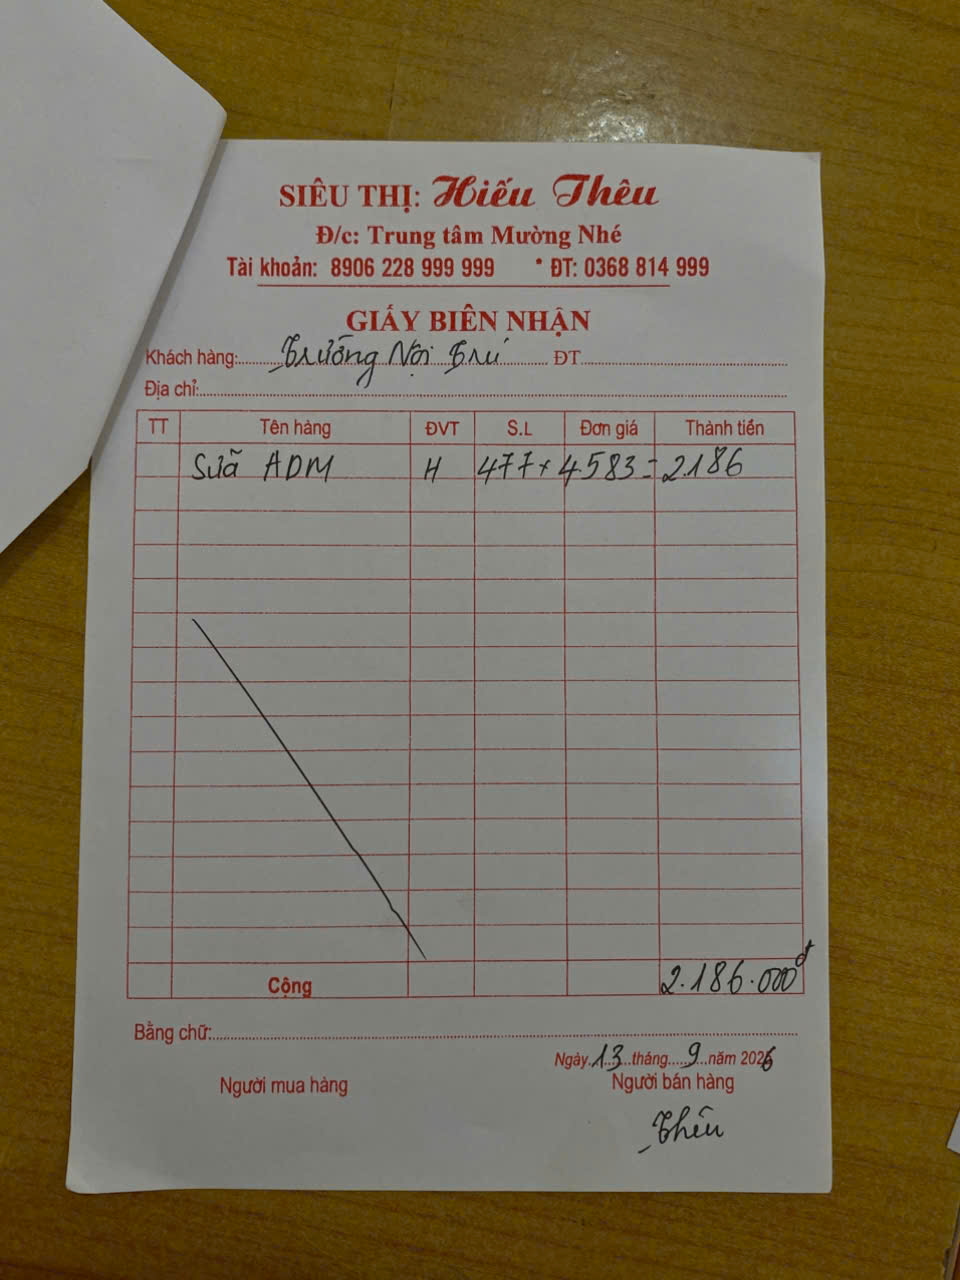 SIÊU THỊ: Hiếu Thêu
Đ/c: Trung tâm Mường Nhé
Tài khoản: 8906 228 999 999 * ĐT: 0368 814 999
GIẤY BIÊN NHẬN
Khách hàng: Trường Nội Trú ĐT
Địa chỉ:
TT Tên hàng ĐVT S.L Đơn giá Thành tiền
Sữa ADM H 477 × 4.583 = 2.186
Cộng 2.186.000đ
Bằng chữ:
Ngày 13 tháng 9 năm 2026
Người mua hàng Người bán hàng
Thêu